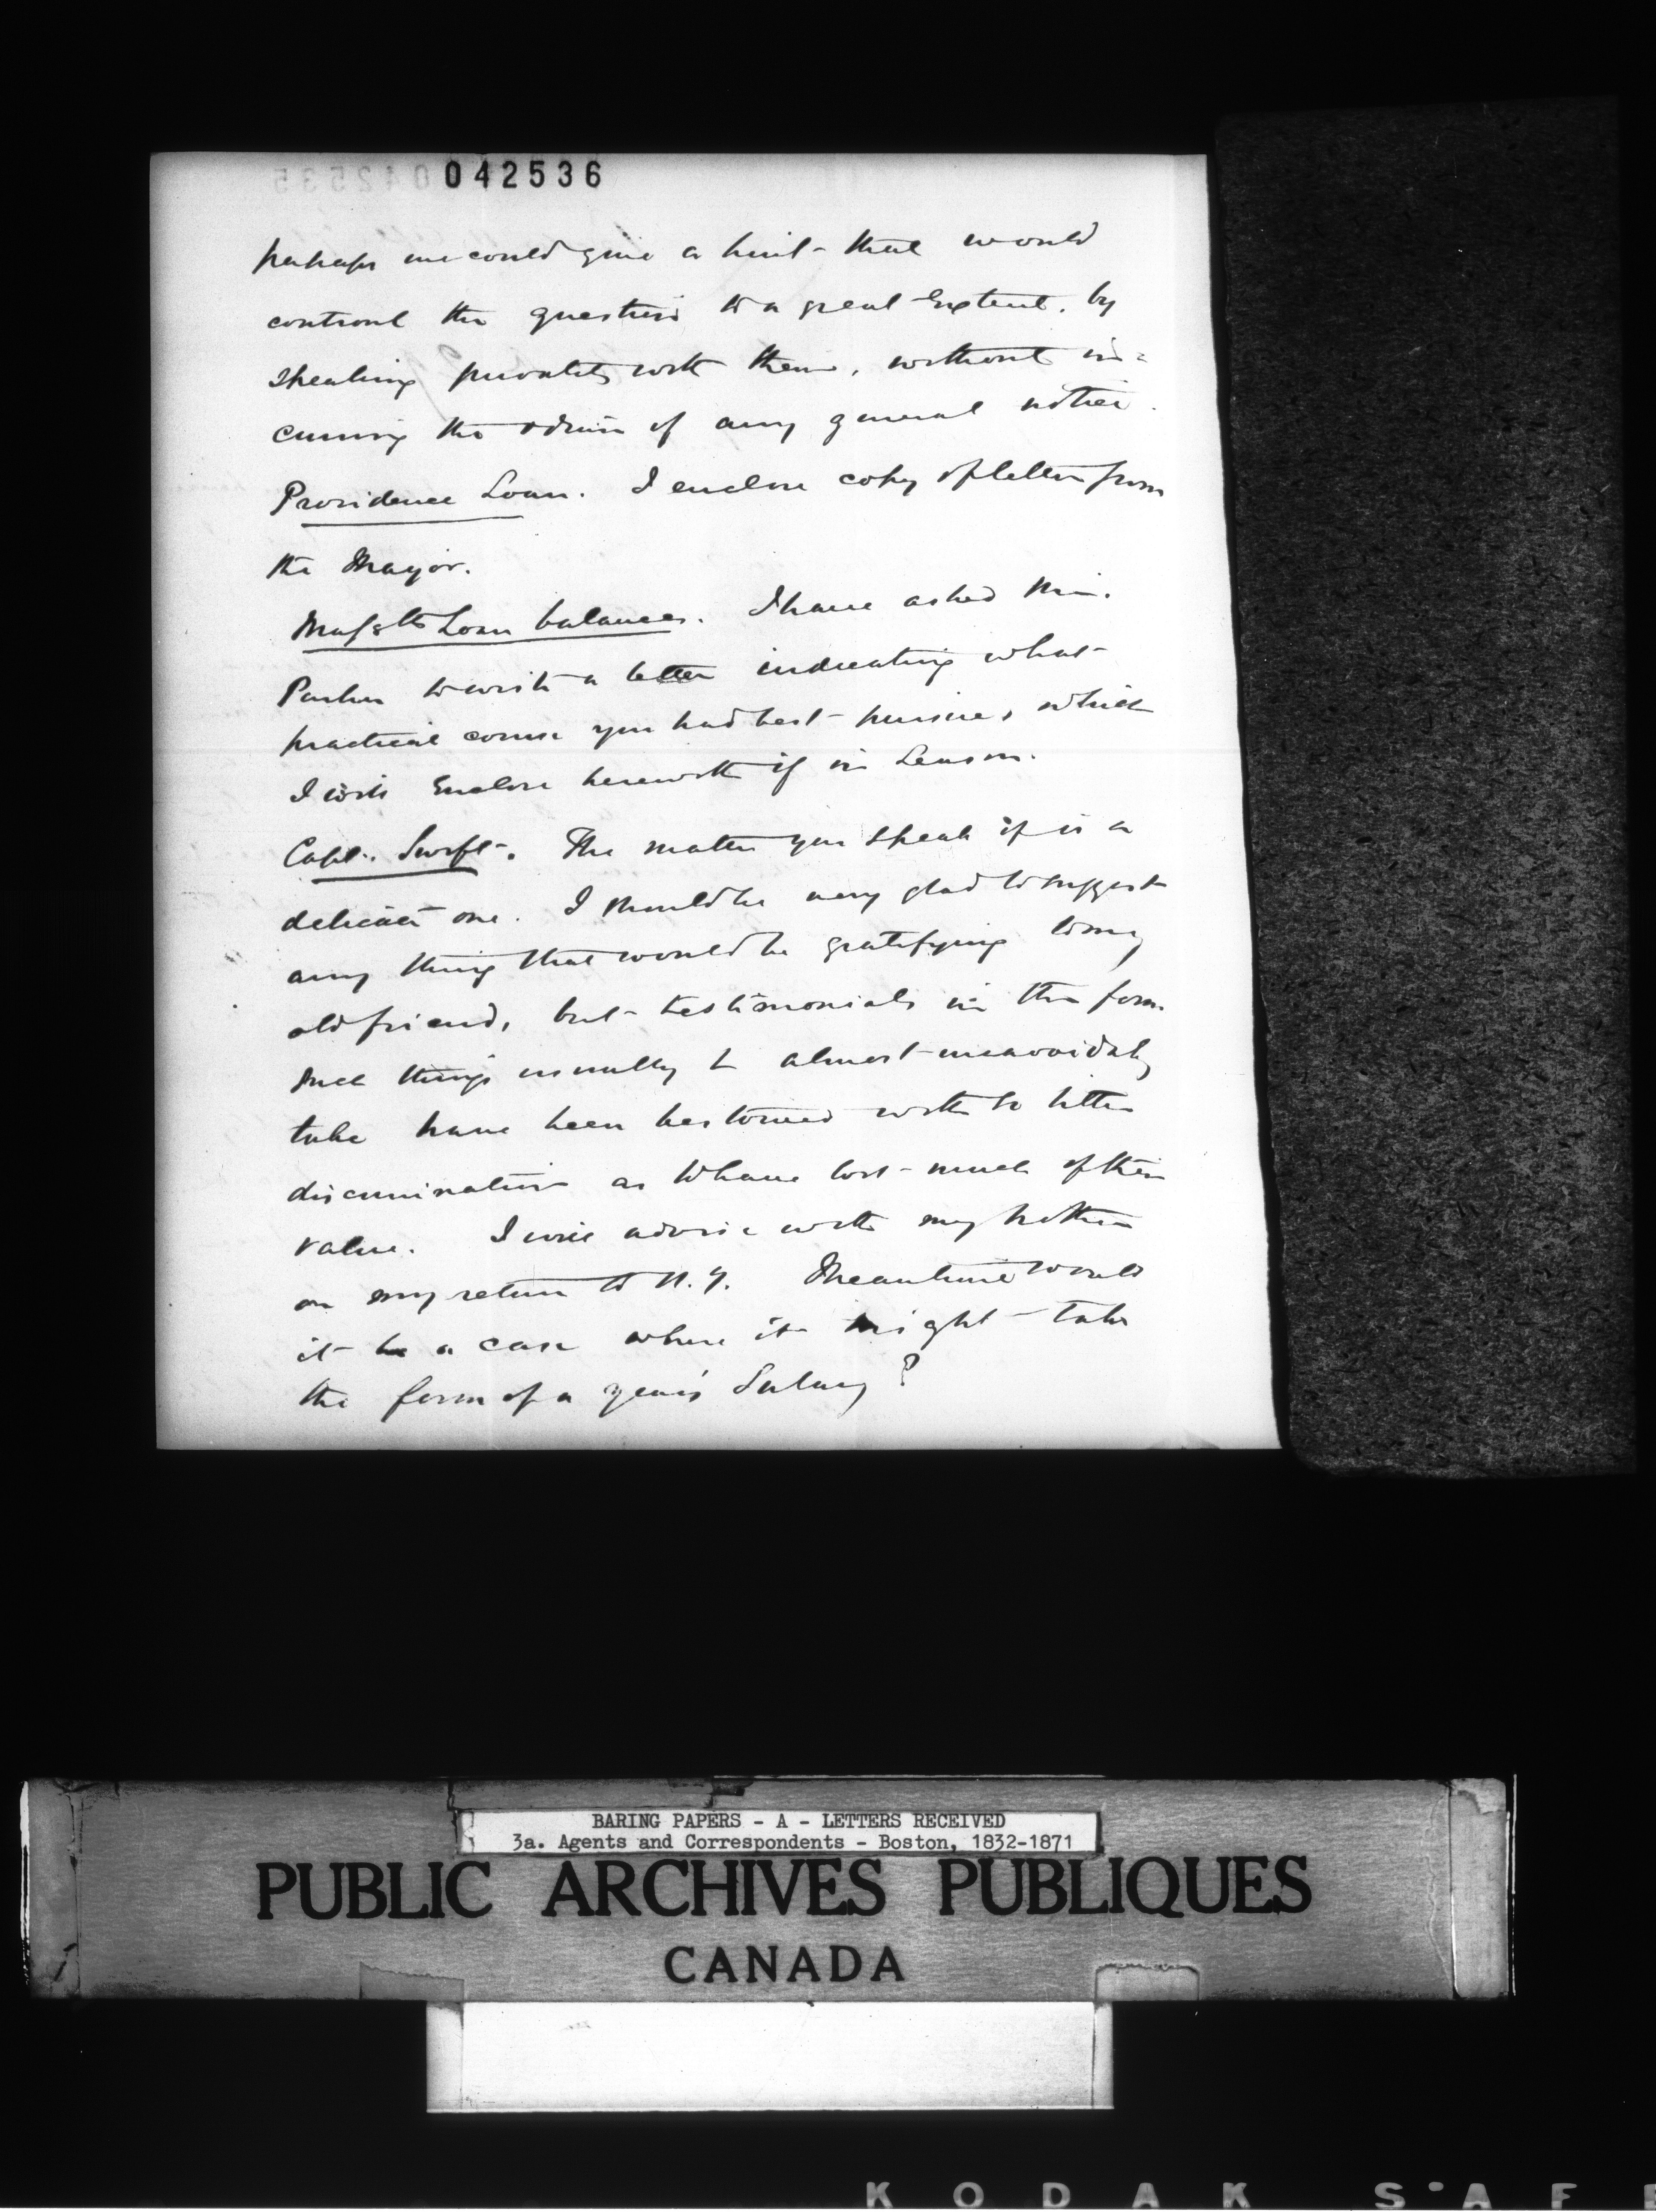 042536
perhaps we could give a hint that would
controul the question to a great extent, by
speaking privately with them, without in=
curring the odium of any general notice.
Providence Loan. I enclose copy of letter from
the Mayor.
Massts Loan balances. I have asked
Parker to write a letter indicating what
practical course you had best pursue, which
I will enclose herewith if in season.
Capt. Swift. The matter you speak of is a
delicate one. I should be very glad to suggest
any thing that would be gratifying to my
old friend, but testimonials in the form
such things usually & almost unavoidably
take have been bestowed with so little
discrimination as to have lost much of their
value. I will advise with my brother
on my return to N.Y. Meantime would
it be a case where it might take
the form of a years Salary?
BARING PAPERS - A - LETTERS RECEIVED
3a. Agents and Correspondents - Boston, 1832-1871
PUBLIC ARCHIVES PUBLIQUES
CANADA
KODAK SAF